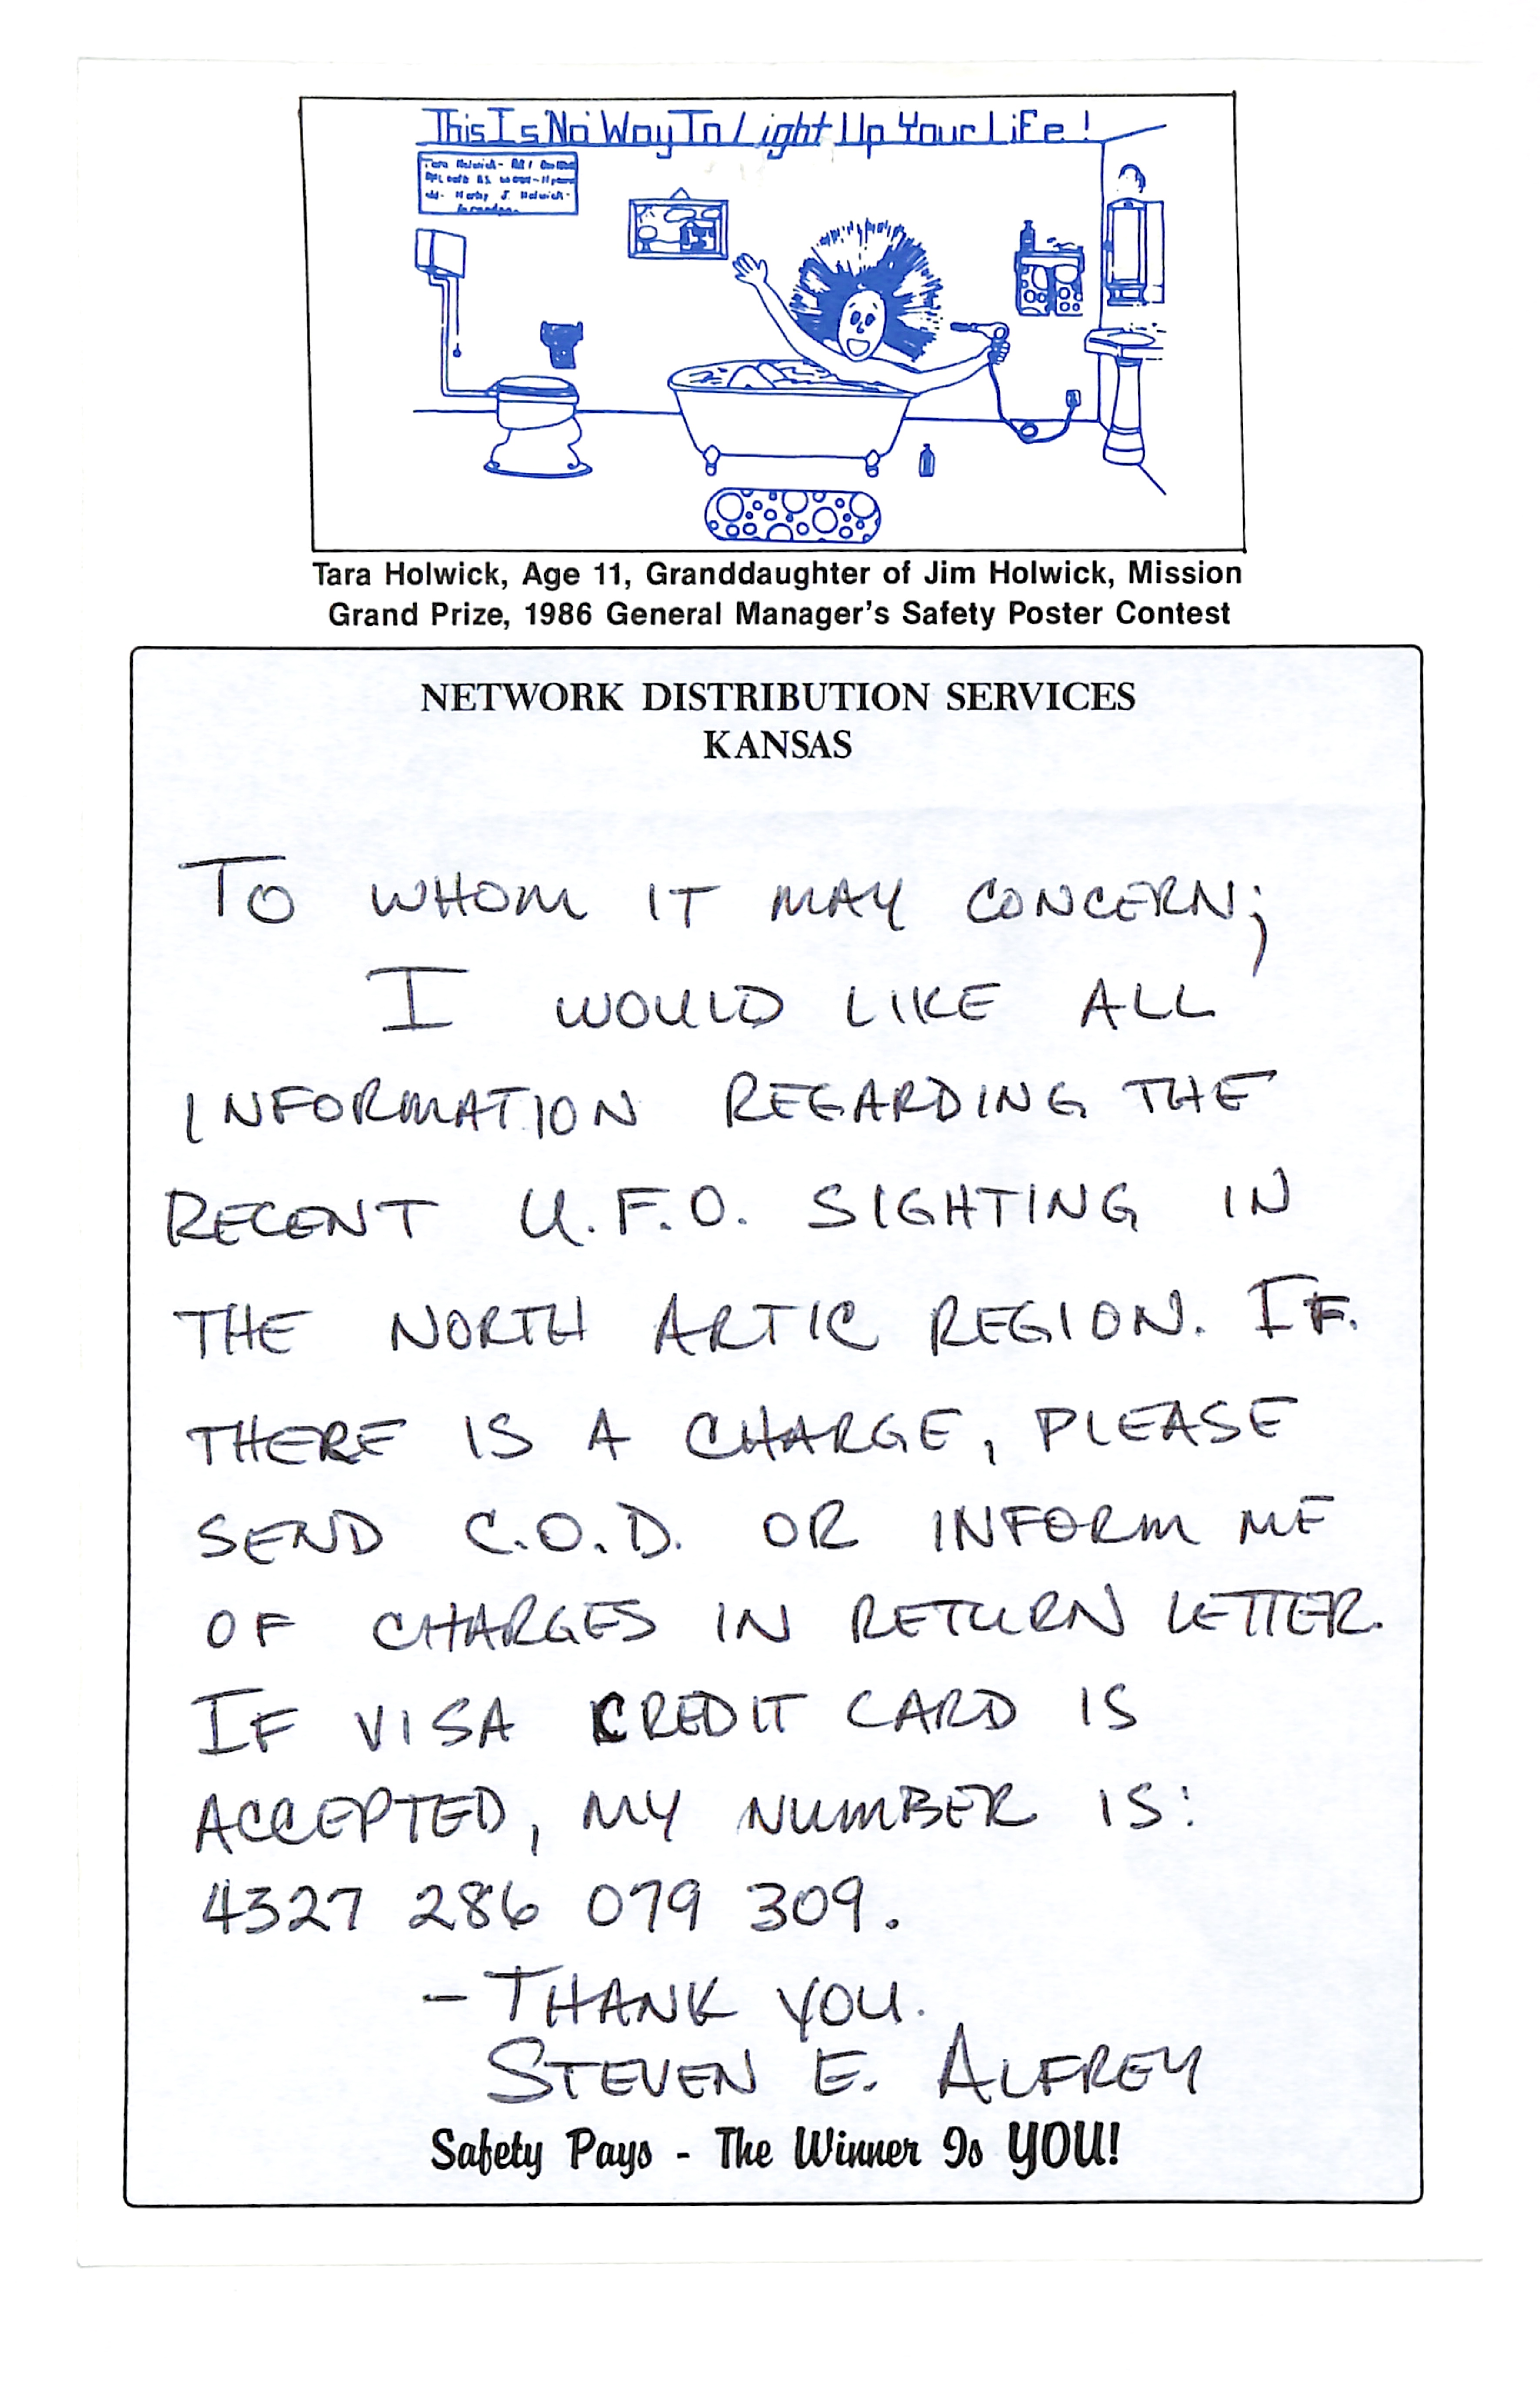 This Is No Way To Light Up Your Life!
Tara Holwick, Age 11, Granddaughter of Jim Holwick, Mission
Grand Prize, 1986 General Manager's Safety Poster Contest
NETWORK DISTRIBUTION SERVICES
KANSAS
TO WHOM IT MAY CONCERN;
I WOULD LIKE ALL
INFORMATION REGARDING THE
RECENT U.F.O. SIGHTING IN
THE NORTH ARTIC REGION. IF.
THERE IS A CHARGE, PLEASE
SEND C.O.D. OR INFORM ME
OF CHARGES IN RETURN LETTER.
IF VISA CREDIT CARD IS
ACCEPTED, MY NUMBER IS:
4327 286 079 309.
- THANK YOU.
STEVEN E. ALFREY
Safety Pays - The Winner Is YOU!